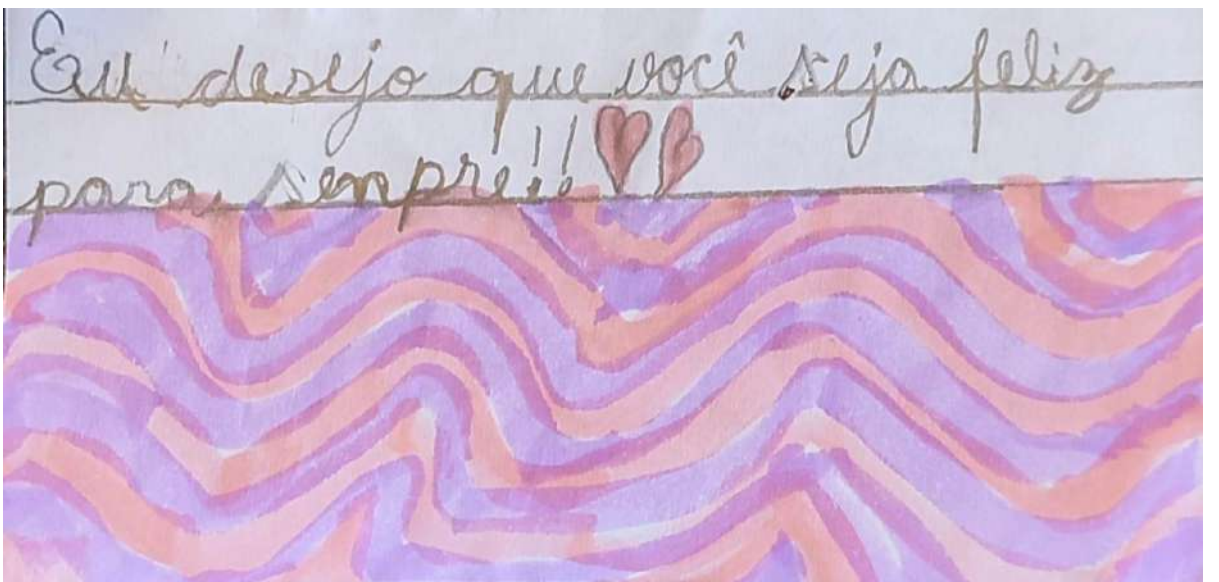 Eu desejo que você seja feliz
para senpre!!